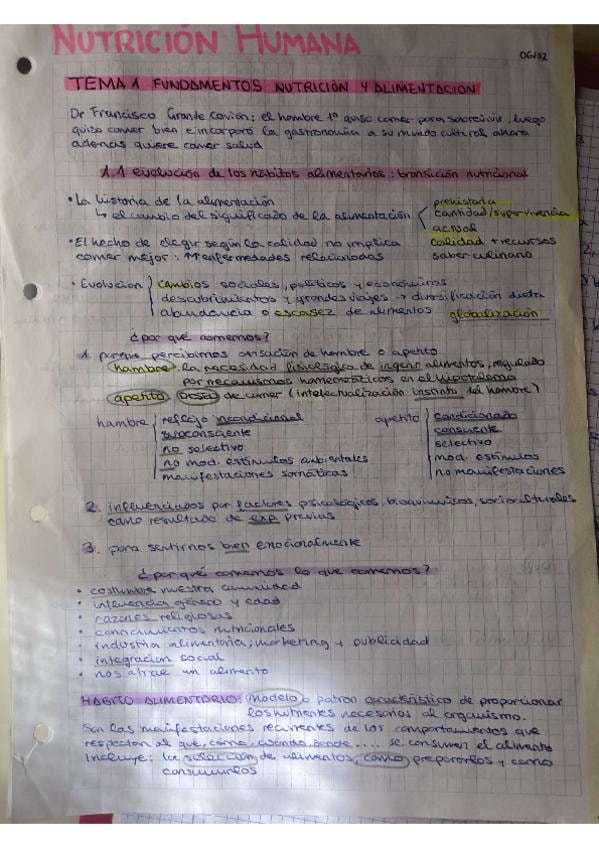 NUTRICIÓN HUMANA
06/02
TEMA 1 FUNDAMENTOS NUTRICIÓN Y ALIMENTACION
Dr Francisco Grande Covión: el hombre 1º quiso comer para sobrevivir, luego
quiso comer bien e incorporó la gastronomía a su mundo cultural ahora
además quiere comer salud
1.1 evolución de los hábitos alimentarios: transición nutricional
• La historia de la alimentación
↳ el cambio del significado de la alimentación
prehistoria
cantidad/supervivencia
actual
calidad + recursos
saber culinario
• El hecho de elegir según la calidad no implica
comer mejor: ↑↑ enfermedades relacionadas
• Evolucion
cambios sociales, políticos y económicos
descubrimientos y grandes viajes → diversificación dieta
abundancia o escasez de alimentos
globalización
¿por qué comemos?
1. porque percibimos sensación de hambre o apetito
hambre: la necesidad fisiológica de ingerir alimentos, regulado
por mecanismos homeostáticos en el hipotálamo
apetito: Deseo de comer (intelectualización instinto del hambre)
hambre
reflejo incondicional
subconsciente
no selectivo
no mod. estímulos ambientales
manifestaciones somáticas
apetito
condicionado
consciente
selectivo
mod. estímulos
no manifestaciones
2. influenciados por factores psicológicos, bioquímicos, socioculturales
como resultado de exp previas
3. para sentirnos bien emocionalmente
¿por qué comemos lo que comemos?
• costumbre nuestra comunidad
• influencia género y edad
• razones religiosas
• conocimientos nutricionales
• industria alimentaria, marketing y publicidad
• integracion social
• nos atrae un alimento
HABITO ALIMENTARIO: modelo o patron característico de proporcionar
los nutrientes necesarios al organismo.
Son las manifestaciones recurrentes de los comportamientos que
respectan al qué, cómo, cuándo, dónde .... se consumen el alimento
Incluye: la selección de alimentos, como prepararlos y como
consumirlos